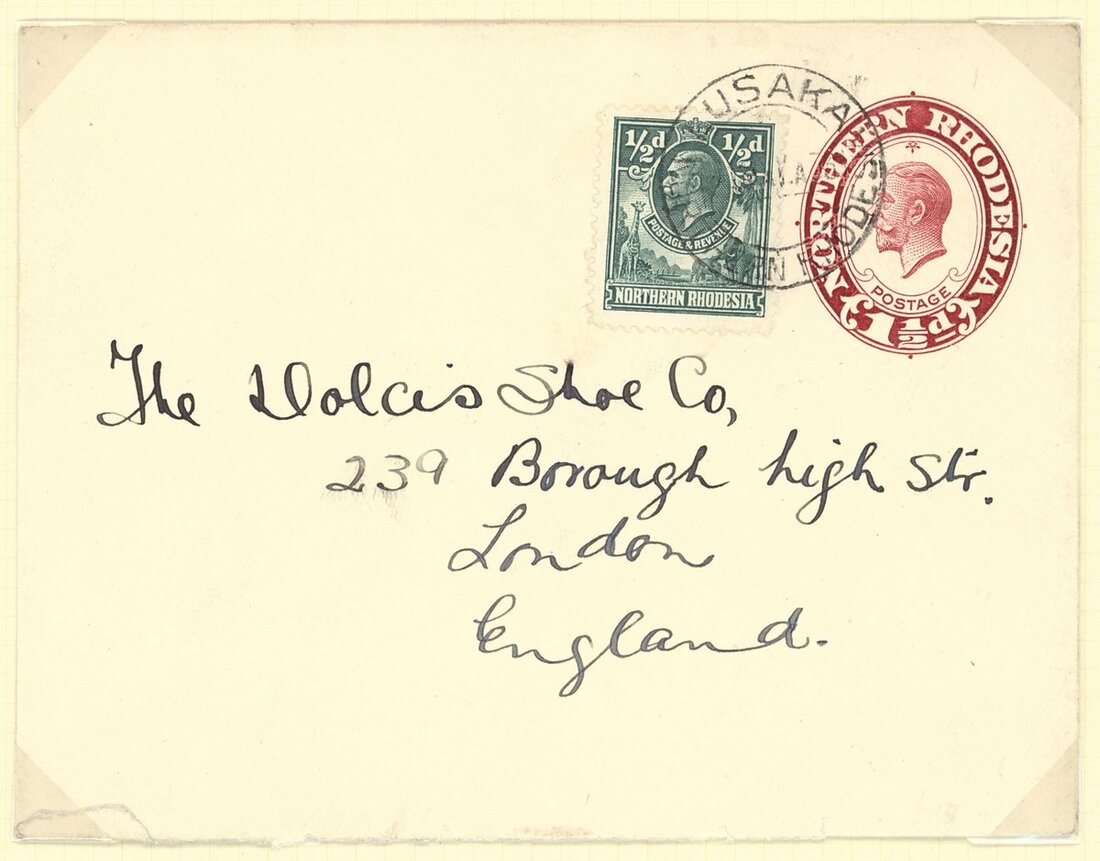 LUSAKA
NORTHERN RHODESIA
½d ½d
POSTAGE & REVENUE
NORTHERN RHODESIA
POSTAGE
1½d
The Dolcis Shoe Co,
239 Borough high Str.
London
England.